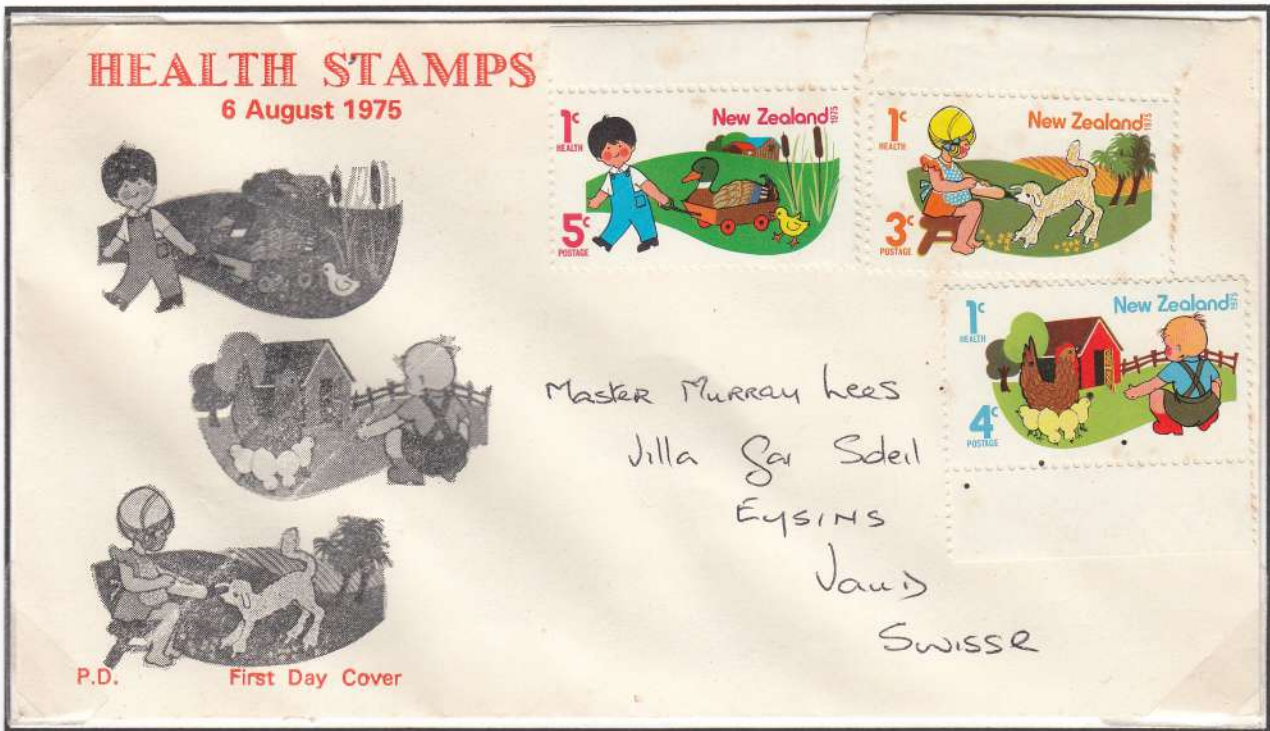 HEALTH STAMPS
6 August 1975
1c
HEALTH
New Zealand 1975
5c
POSTAGE
1c
HEALTH
New Zealand 1975
3c
POSTAGE
1c
HEALTH
New Zealand 1975
4c
POSTAGE
Master Murray Lees
Villa Gai Soleil
Eysins
Vaud
Swisse
P.D. First Day Cover